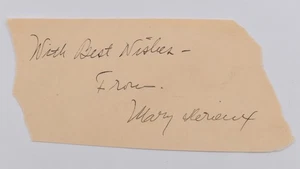 With Best Wishes –
From.
Mary